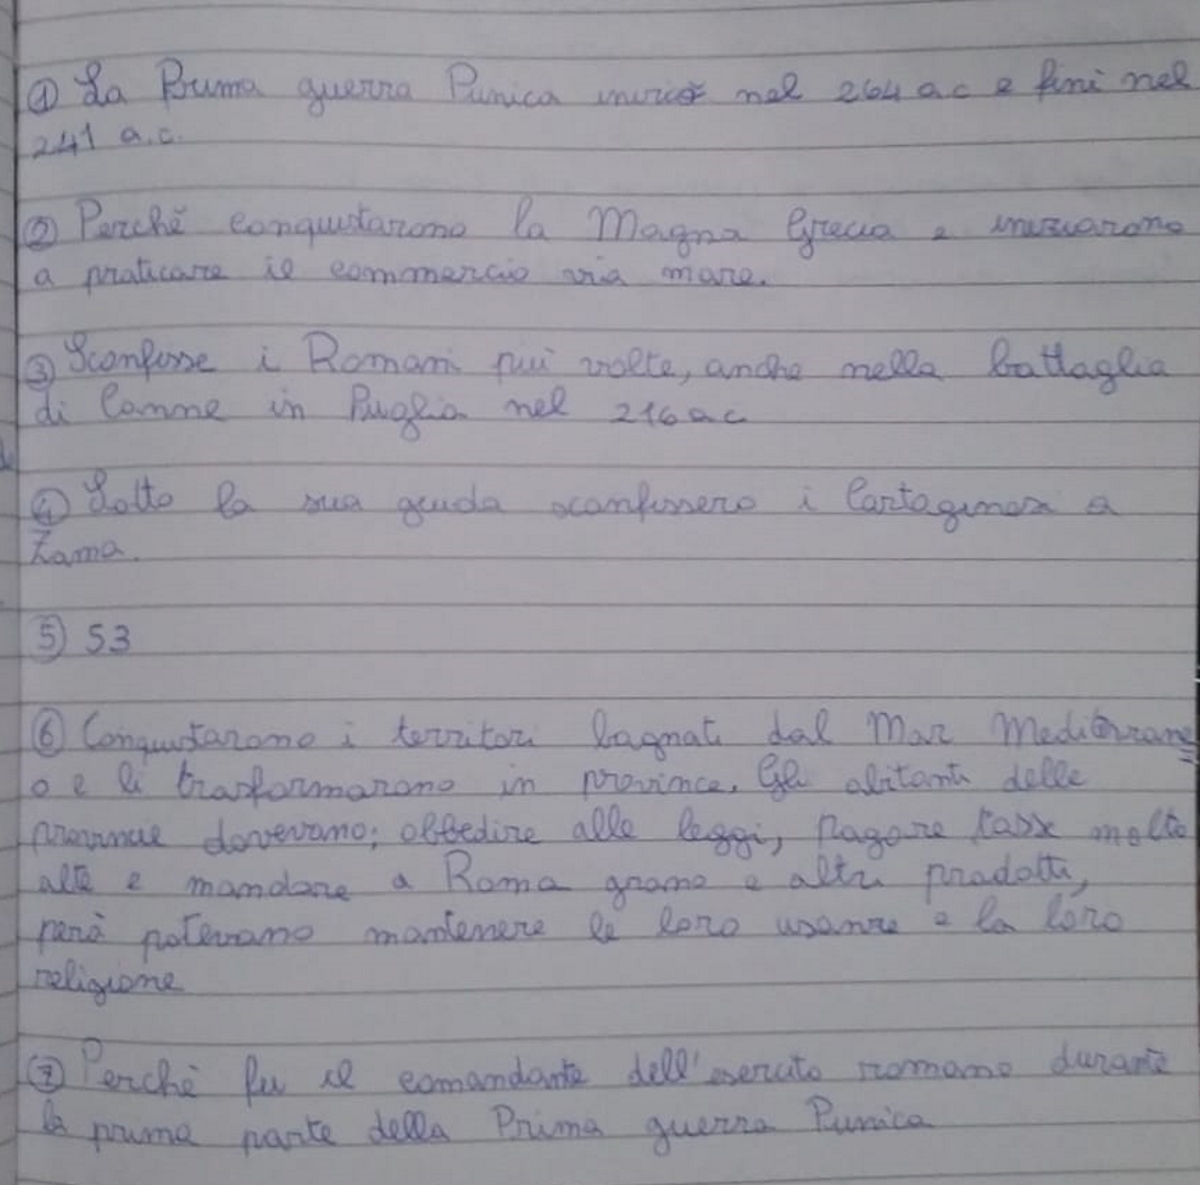 ① La Prima guerra Punica iniziò nel 264 a.c e finì nel
241 a.c.
② Perchè conquistarono la Magna Grecia e iniziarono
a praticare il commercio via mare.
③ Sconfisse i Romani più volte, anche nella battaglia
di Canne in Puglia nel 216 a c
④ Sotto la sua guida sconfissero i Cartaginesi a
Zama.
⑤ 53
⑥ Conquistarono i territori bagnati dal Mar Mediterrane
o e li trasformarono in province. Gli abitanti delle
province dovevano; obbedire alle leggi, pagare tasse molto
alte e mandare a Roma grano e altri prodotti,
però potevano mantenere le loro usanze e la loro
religione
⑦ Perchè fu il comandante dell'esercito romano durante
la prima parte della Prima guerra Punica